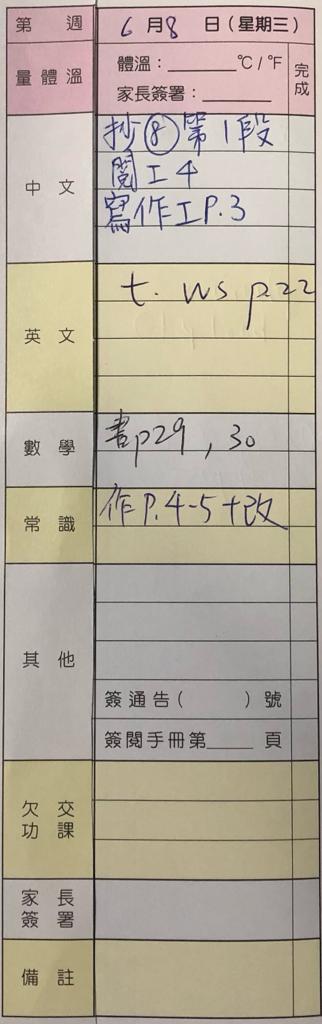 第 週 6月8日(星期三)
量體溫 體溫:______°C/°F 完成
家長簽署:______
中文 抄⑧第1段
閱工4
寫作工P.3
英文 t. ws p22
數學 書p29,30
常識 作P.4-5+改
其他
簽通告( )號
簽閱手冊第____頁
欠交
功課
家長
簽署
備註